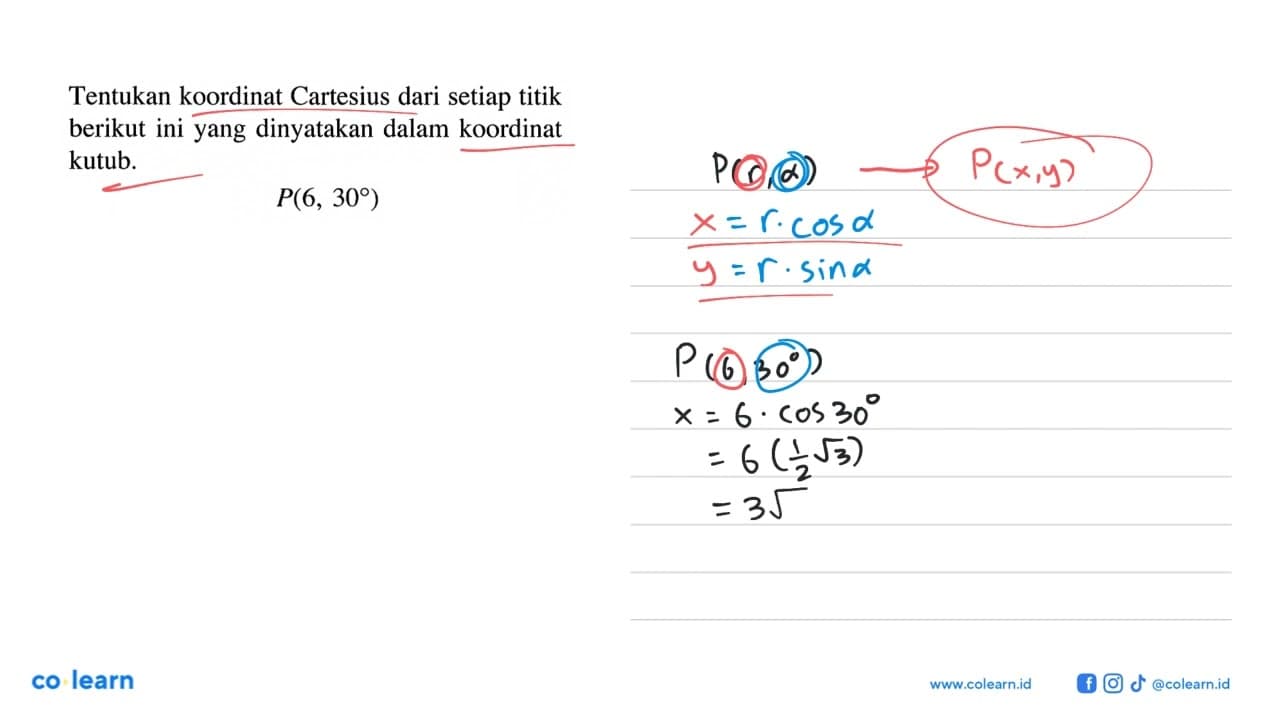 Tentukan koordinat Cartesius dari setiap titik
berikut ini yang dinyatakan dalam koordinat
kutub.
P(6, 30°)
P(r,α) → P(x,y)
x = r·cosα
y = r·sinα
P(6,30°)
x = 6·cos30°
= 6(1/2√3)
= 3√
co learn
www.colearn.id
@colearn.id